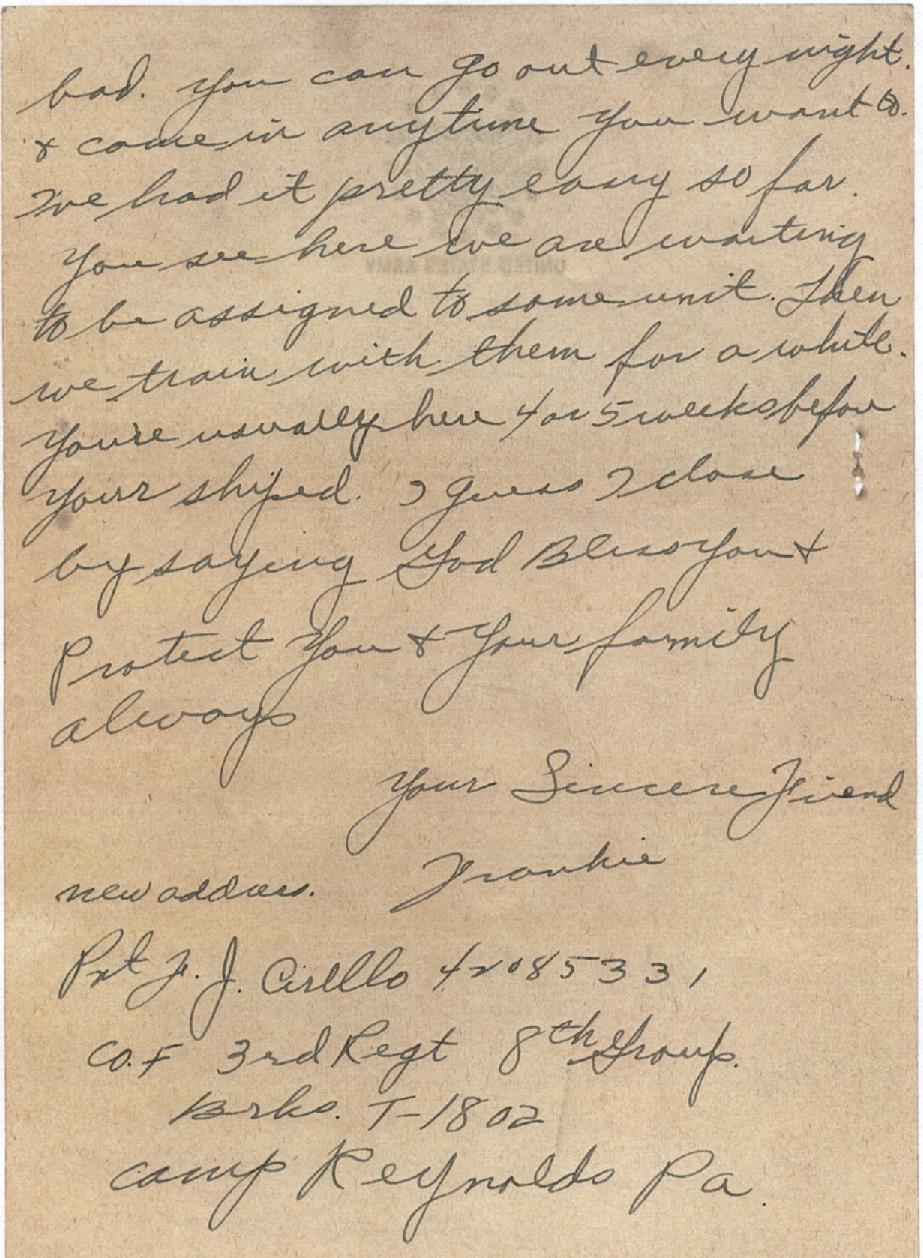 bad. You can go out every night.
& come in anytime you want to.
I've had it pretty easy so far.
You see here we are waiting
to be assigned to some unit. Then
we train with them for a while.
You're usually here 4 or 5 weeks before
your shiped. I guess I close
by saying God Bless You &
Protect You & Your family
always
Your Sincere Friend
Frankie
new address.
Pvt F. J. Cirello 42085331
Co. F 3rd Regt 8th Group.
Brks. T-1802
Camp Reynolds Pa.
UNITED STATES ARMY